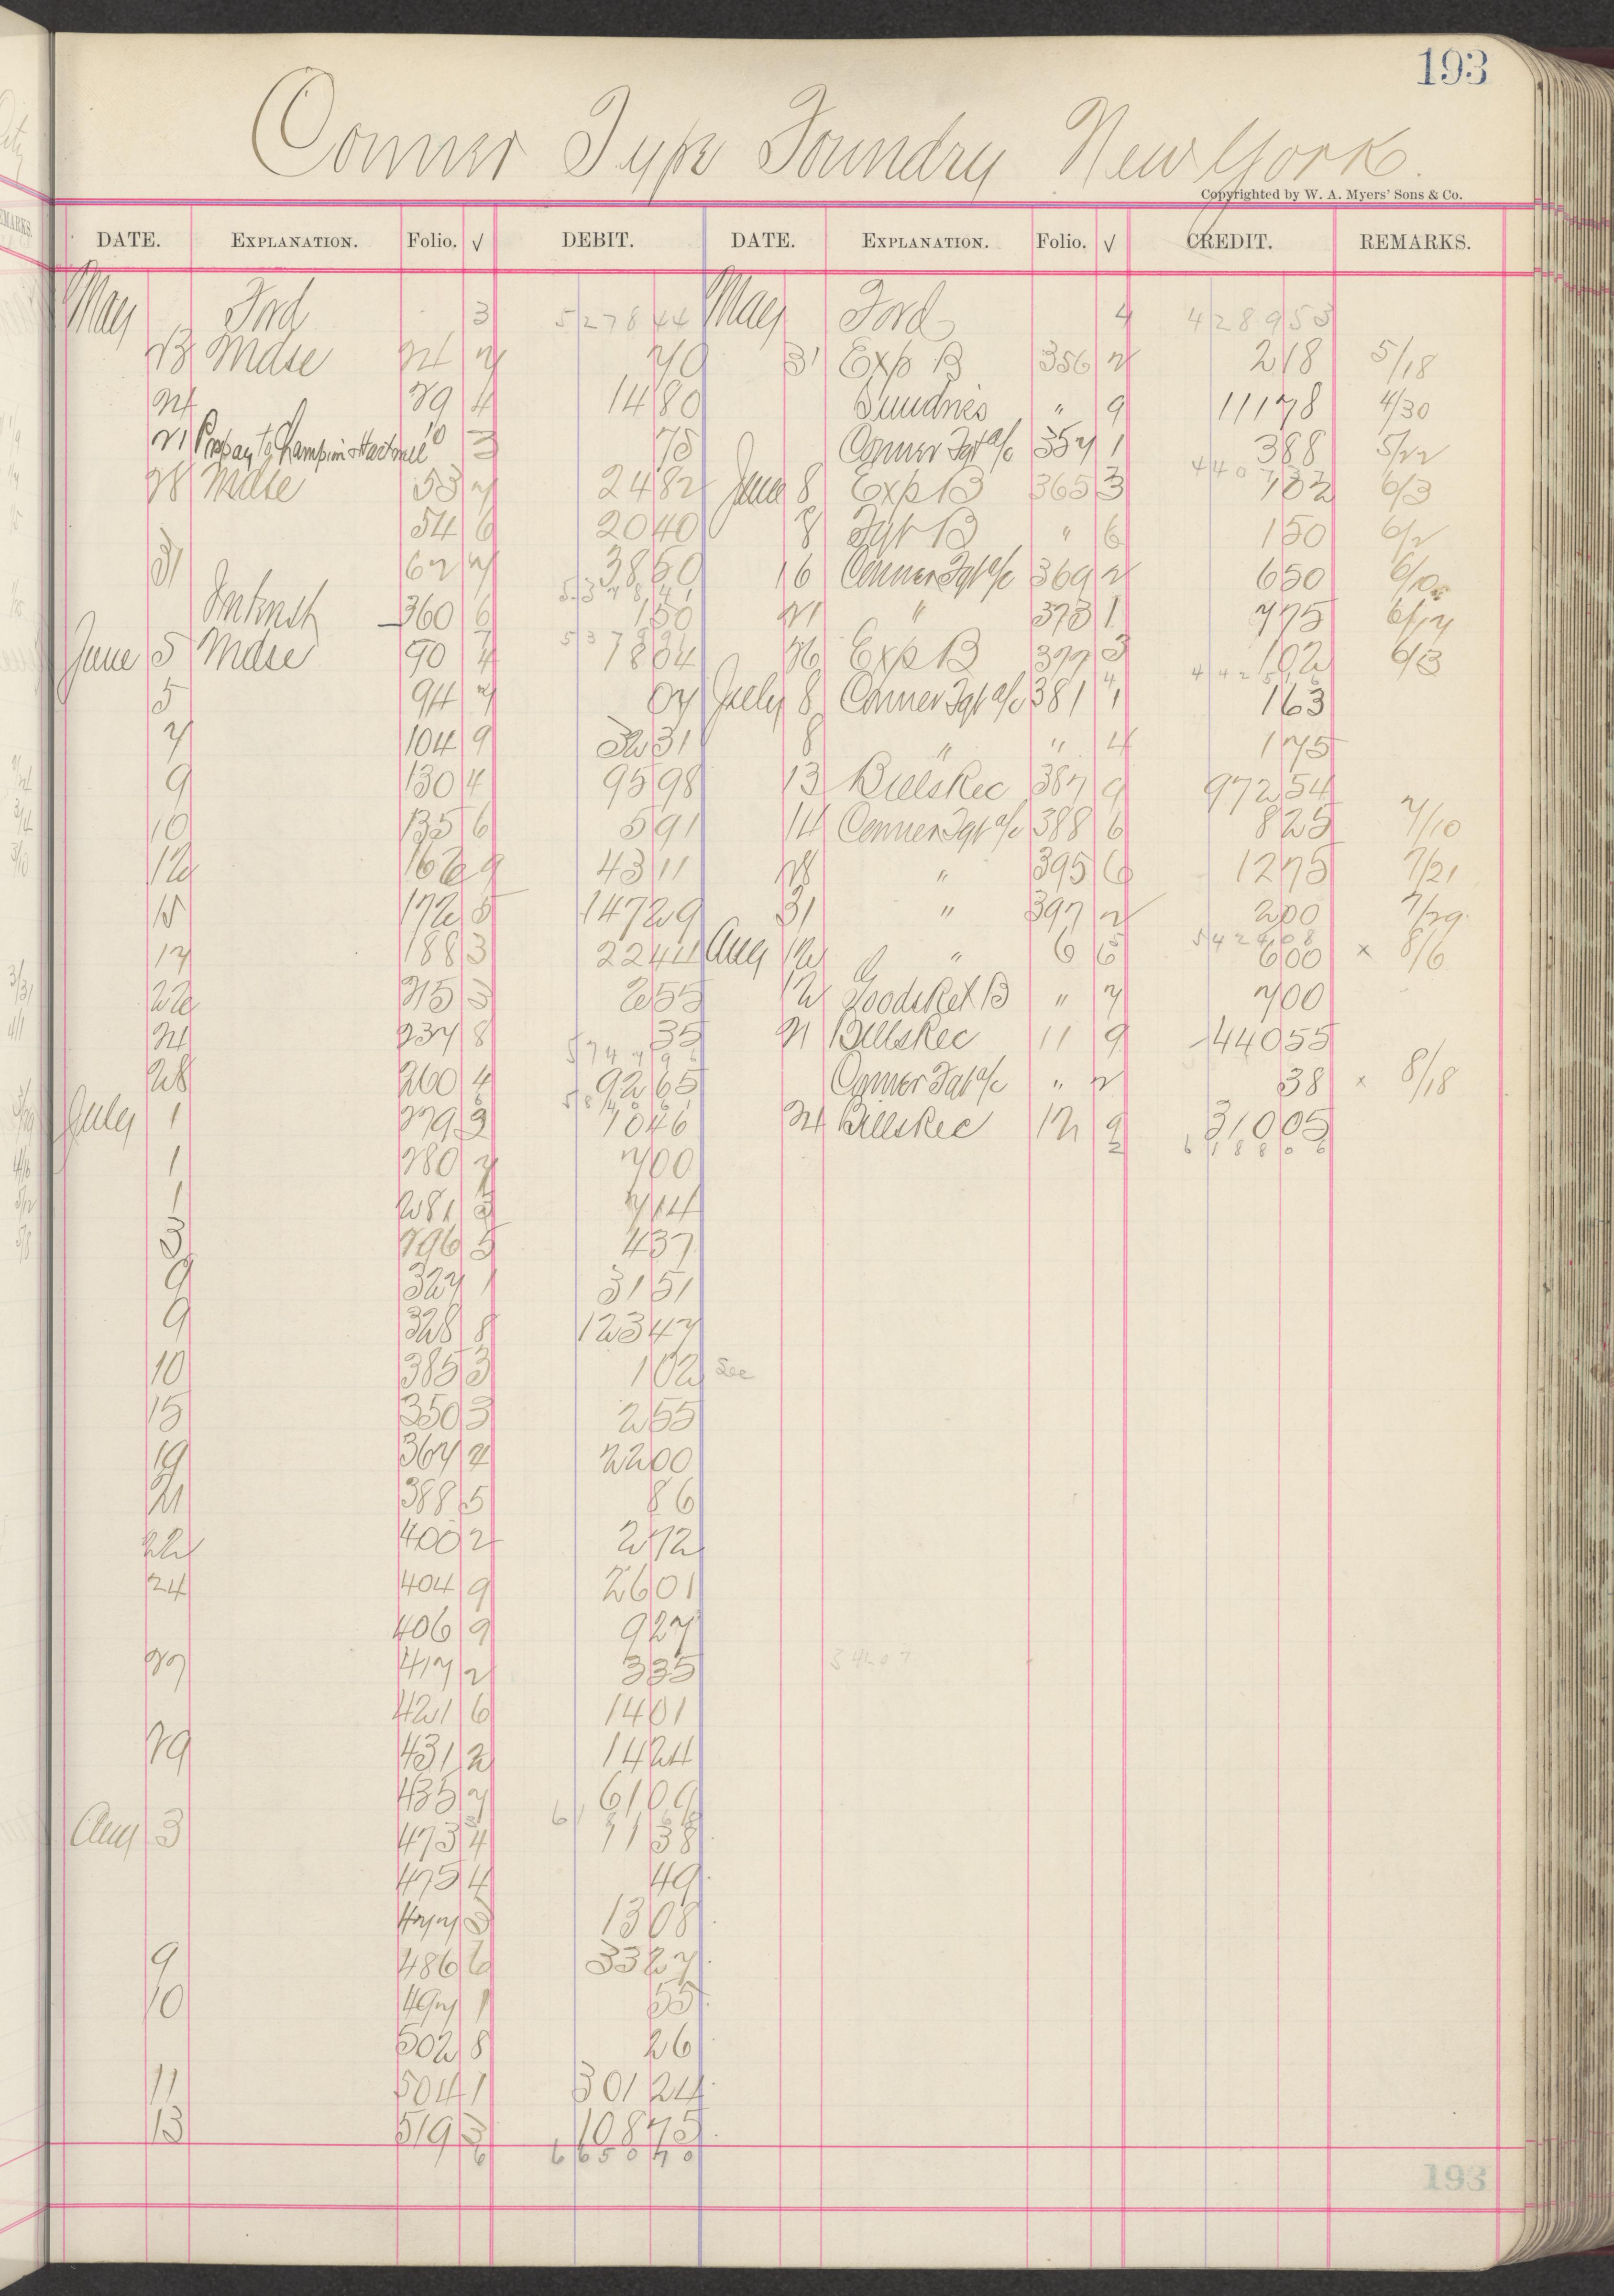 193
Conner Type Foundry New York.
Copyrighted by W. A. Myers' Sons & Co.
DATE. EXPLANATION. Folio. √ DEBIT. DATE. EXPLANATION. Folio. √ CREDIT. REMARKS.
May Ford 3 527844 May Ford 4 428953
23 Mdse 24 2 70 31 Exp B 356 2 218 5/18
24 29 4 1480 Sundries " 9 11178 4/30
21 Prepay to Champion & Hartnell 10 3 75 Conner Fgt a/c 357 1 388 5/22
440732
28 Mdse 53 7 2482 June 8 Exp B 365 3 132 6/3
54 6 2040 8 Fgt B " 6 150 6/2
31 62 7 3850 16 Conner Fgt a/c 369 2 650 6/10
Interest 360 6 150 21 " 373 1 775 6/17
June 5 Mdse 90 4 1804 26 Exp B 377 3 102 6/13
5 94 7 07 July 8 Conner Fgt a/c 381 1 163
7 104 9 3231 8 " " 4 175
9 130 4 9598 13 Bills Rec 387 9 97254
10 135 6 591 14 Conner Fgt a/c 388 6 825 7/10
12 162 9 4311 28 " 395 6 1275 7/21
15 172 5 14729 31 " 397 2 200 7/29
17 188 3 2244 Aug 12 " 6 6 600 x 8/6
22 215 3 255 12 Goods Ret B " 7 700
24 237 8 35 21 Bills Rec 11 9 44055
28 260 4 9265 Conner Fgt a/c " 2 38 x 8/18
July 1 279 3 1046 24 Bills Rec 12 9 31005
2 618806
1 280 7 700
1 281 3 714
3 296 5 437
9 327 1 3151
9 328 8 12347
10 385 3 102 See
15 350 3 255
19 367 4 2200
21 388 5 86
22 400 2 272
24 404 9 2601
406 9 927
27 417 2 335
421 6 1401
29 431 2 1424
435 7 6109
Aug 3 473 4 1138
475 4 49
477 3 1308
9 486 6 3327
10 497 1 55
502 8 26
11 504 1 30124
13 519 3 10875
6 665070
193